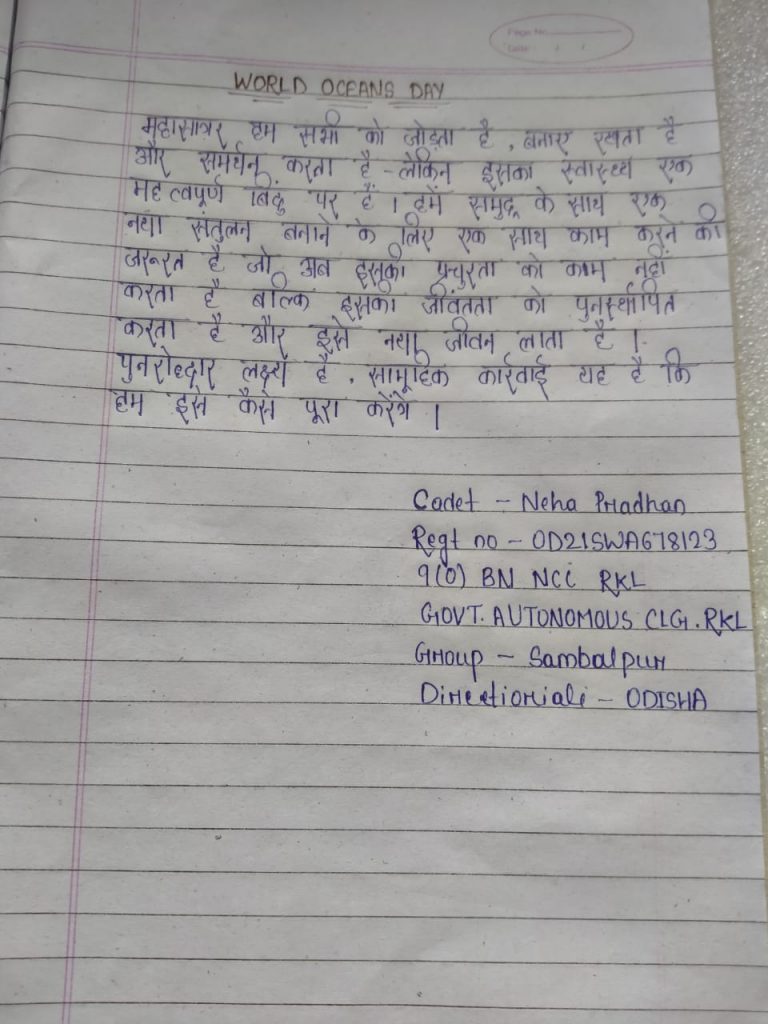 Page No.
Date: / /
WORLD OCEANS DAY
महासागर हम सभी को जोड़ता है, बनाए रखता है
और समर्थन करता है - लेकिन इसका स्वास्थ्य एक
महत्वपूर्ण बिंदु पर है। हमें समुद्र के साथ एक
नया संतुलन बनाने के लिए एक साथ काम करने की
जरूरत है जो अब इसकी प्रचुरता को काम नहीं
करता है बल्कि इसकी जीवंतता को पुनर्स्थापित
करता है और इसे नया जीवन लाता है।
पुनरोद्दार लक्ष्य है, सामूहिक कार्रवाई यह है कि
हम इसे कैसे पूरा करेंगे।
Cadet - Neha Pradhan
Regt no - OD21SWA678123
9(O) BN NCC RKL
GOVT. AUTONOMOUS CLG. RKL
Group - Sambalpur
Directoriali - ODISHA